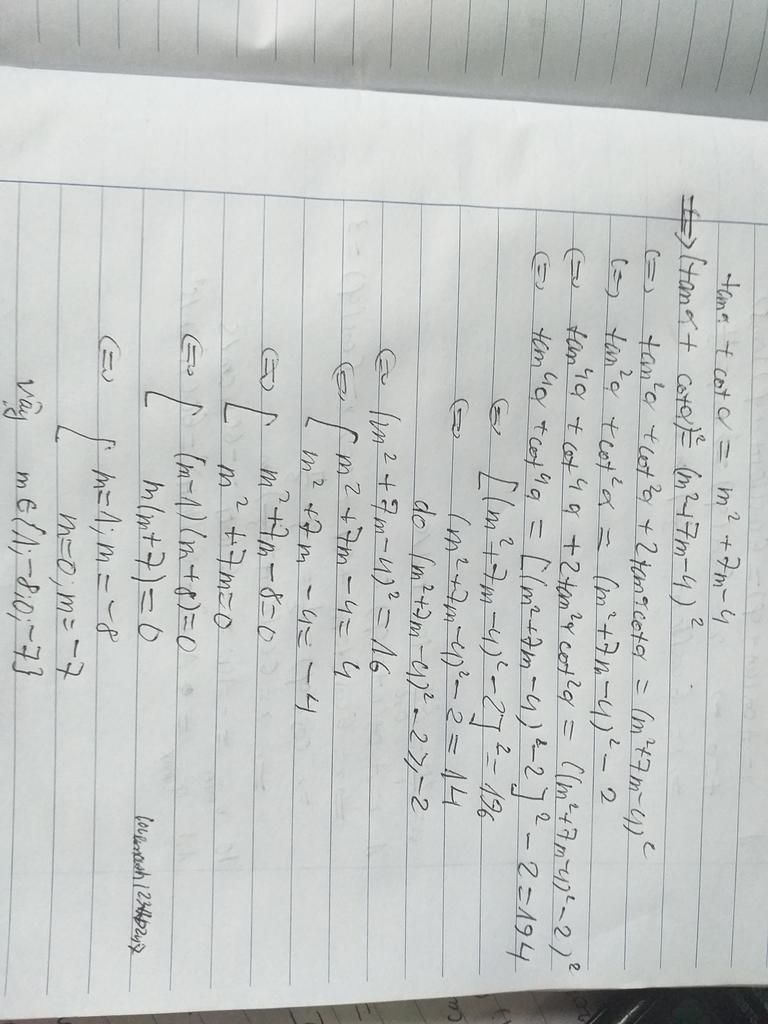 tanα + cotα = m² + 7m - 4
⇔ (tanα + cotα)² = (m² + 7m - 4)²
⇔ tan²α + cot²α + 2tanα cotα = (m² + 7m - 4)²
⇔ tan²α + cot²α = (m² + 7m - 4)² - 2
⇔ tan⁴α + cot⁴α + 2tan²α cot²α = ((m² + 7m - 4)² - 2)²
⇔ tan⁴α + cot⁴α = [(m² + 7m - 4)² - 2]² - 2 = 194
⇔ [(m² + 7m - 4)² - 2]² = 196
⇔ (m² + 7m - 4)² - 2 = 14
do (m² + 7m - 4)² - 2 ≥ -2
⇔ (m² + 7m - 4)² = 16
⇔ [ m² + 7m - 4 = 4
m² + 7m - 4 = -4
⇔ [ m² + 7m - 8 = 0
m² + 7m = 0
⇔ [ (m - 1)(m + 8) = 0
m(m + 7) = 0
⇔ [ m = 1; m = -8
m = 0; m = -7
Vậy m ∈ {1; -8; 0; -7}